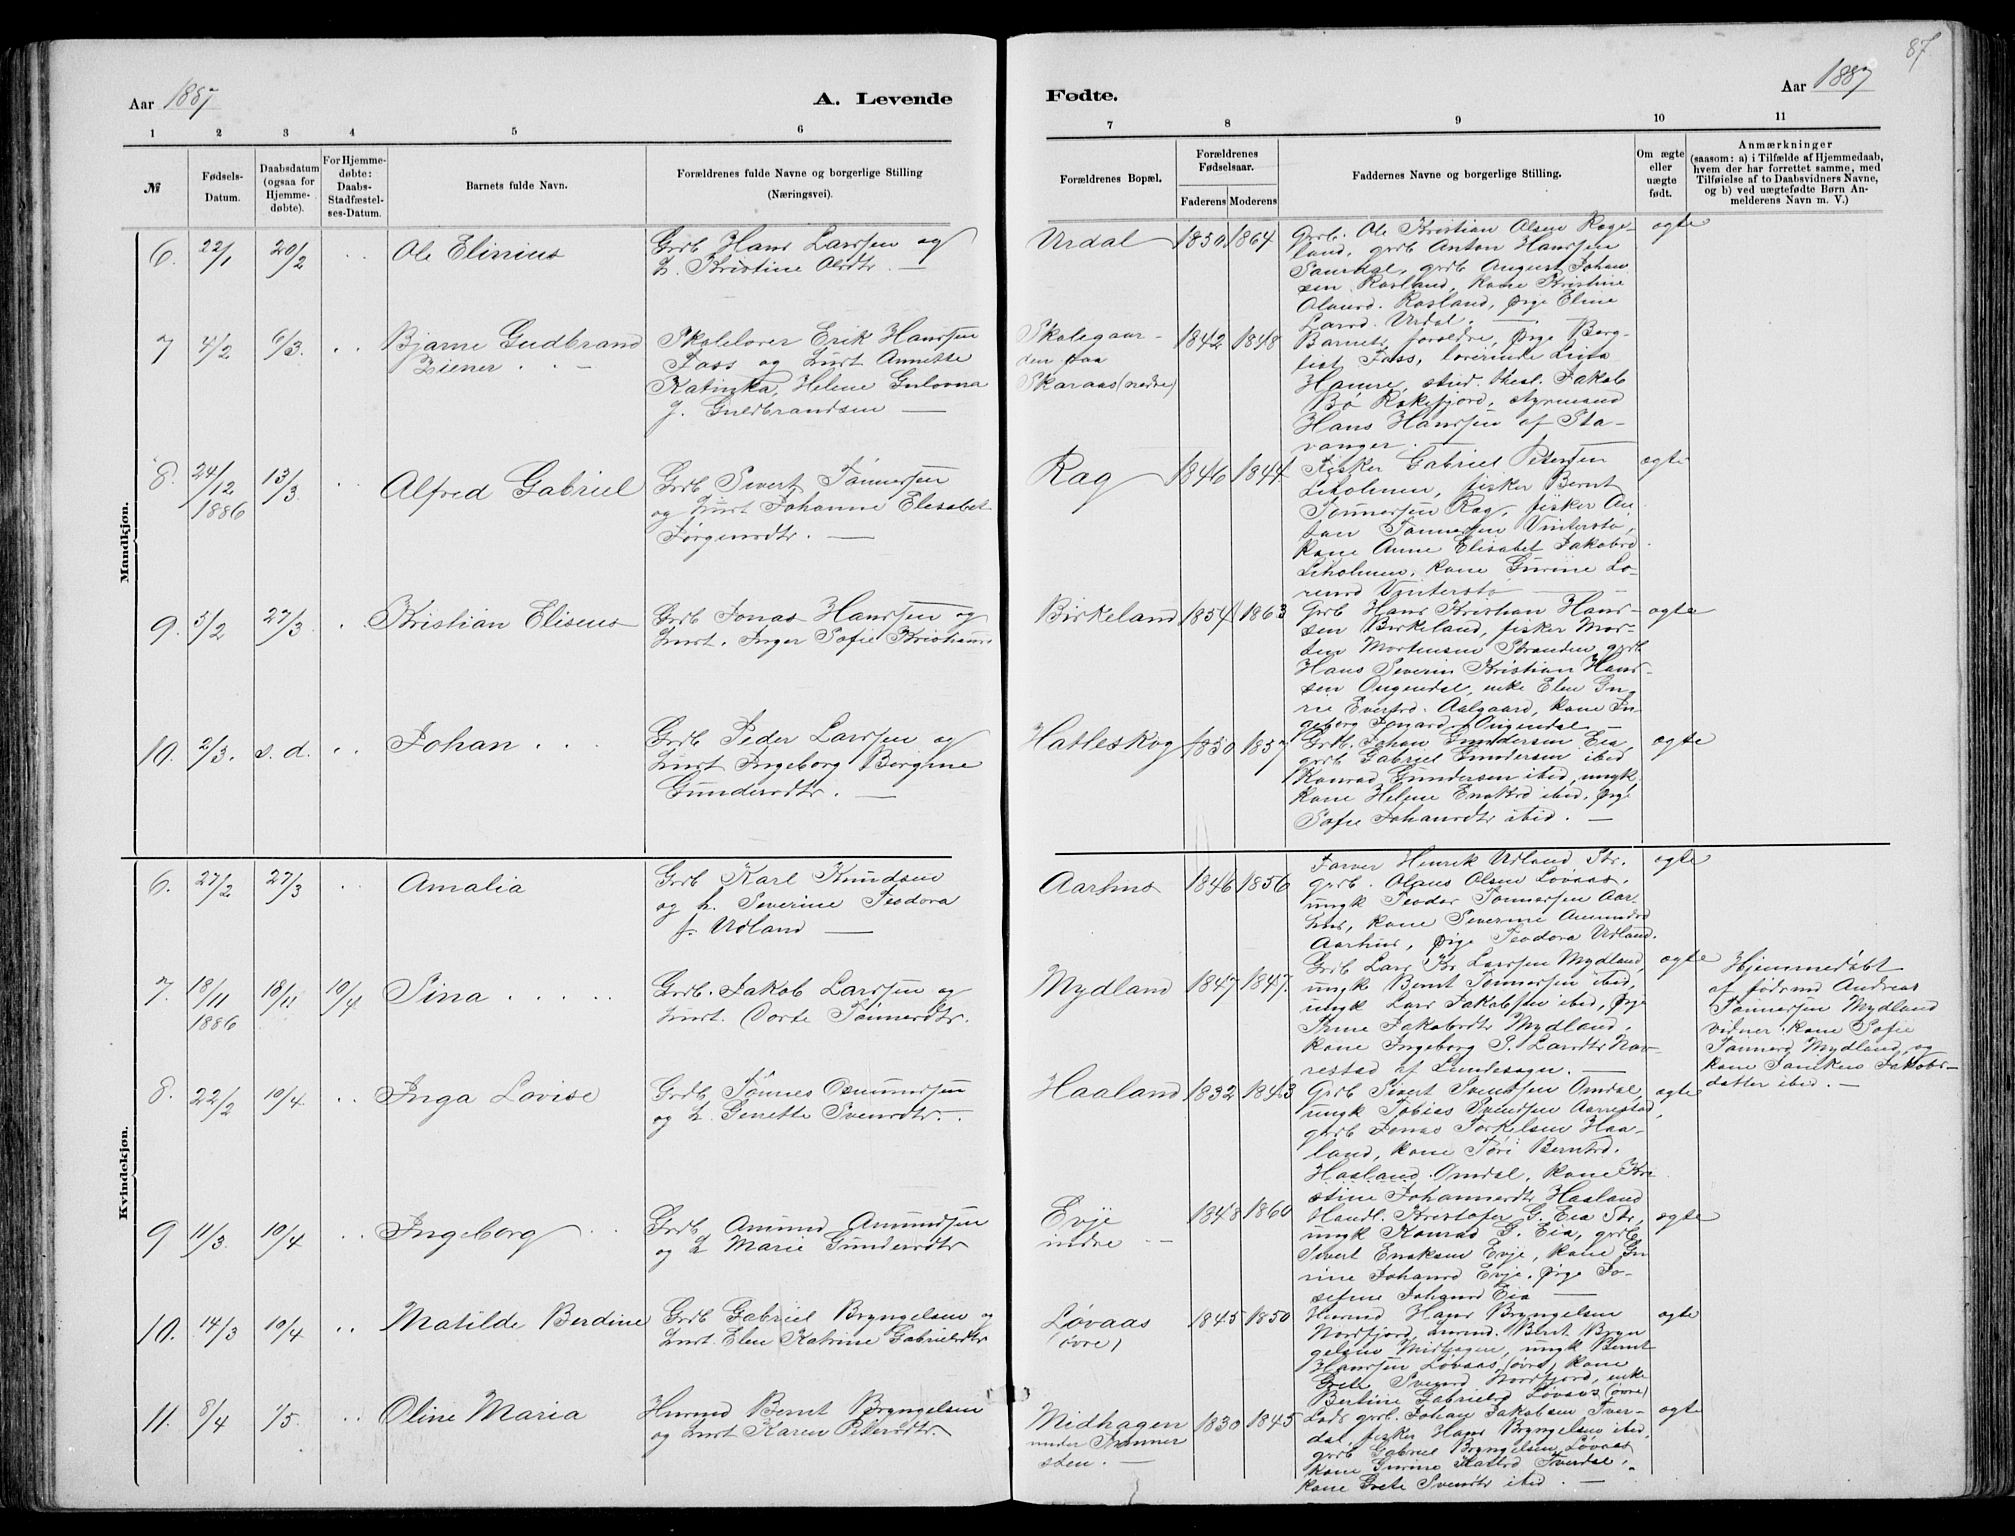 87
Aar 1887
A. Levende
Fødte.
Aar 1887
1 2 3 4 5 6 7 8 9 10 11
№
Fødsels-
Datum.
Daabsdatum
(ogsaa for
Hjemme-
døbte).
For Hjemme-
døbte:
Daabs-
Stadfæstel-
ses-Datum.
Barnets fulde Navn.
Forældrenes fulde Navne og borgerlige Stilling
(Næringsvei).
Forældrenes Bopæl.
Forældrenes
Fødselsaar.
Faderens Moderens
Faddernes Navne og borgerlige Stilling.
Om ægte
eller
uægte
født.
Anmærkninger
(saasom: a) i Tilfælde af Hjemmedaab,
hvem der har forrettet samme, med
Tilføielse af to Daabsvidners Navne,
og b) ved uægtefødte Børn An-
melderens Navn m. V.)
Mandkjøn.
6. 22/1 20/2 Ole Elinius
Grdb Hans Larssen og
h. Kristine Olsdtr. —
Urdal 1850 1864
Grdb. Ole Kristian Olsen Rage-
land, grdb Anton Hanssen
Samdal, grdb August Johan
sen Rosland, kone Kristine
Olausd. Rosland, pige Eline
Larsd. Urdal. —
ægte
7 4/2 6/3. Bjarne Gudbrand
Ziener
Skolelærer Erik Hanssen
Foss og hust Annette
Katinka, Helene Gulovna
f. Guldbrandsen —
Skolegaar-
den paa
Skaraas (nedre)
1842 1848
Barnets forældre, pige Berg-
liot Foss, lærerinde Lina
Hamre, stud. theol. Jakob
Bø Rekefjord, styrmand
Hans Hanssen af Sta-
vanger. —
8. 24/12 1886 13/3 Alfred Gabriel
Grdb Sivert Tønnessen
og hust Johanne Elisabet
Jørgensdtr. —
Rag 1846 1844
Fisker Gabriel Petersen
Liholmen, fisker Bernt
Tønnessen Rag, fisker An-
ton Tønnessen Vinterstø,
kone Anne Elisabet Jakobsd
Liholmen, kone Gurine Lo-
rensd Vinterstø
ægte
9. 5/2 27/3. Kristian Eliseus
Grdb Jonas Hanssen og
hust. Inger Sofie Kristians
Birkeland 1854 1863
Grdb Hans Kristian Hans-
sen Birkeland, fisker Mor-
ten Mortensen Stranden, grdb
Hans Severin Kristian Hans-
sen Ougendal, enke Elen Gu-
rie Evertsd. Aalgaard, kone In
geborg Ougendal —
ægte
10. 2/3. s. d. Johan
Grdb Peder Larssen og
hust Ingeborg Bergine
Gundersdtr. —
Hatleskog 1850 1857
Grdb. Johan Gundersen Eia,
grdb Gabriel Gundersen ibid,
Konrad Gundersen ibid, ungk.
kone Helene Enoksd ibid, pige
Sofie Johansdtr ibid. —
ægte
Kvindekjøn.
6. 27/2 27/3 Amalia
Grdb Karl Knudsen
og h. Severine Teodora
f. Udland —
Aarhus 1846 1856
Farver Henrik Udland Str.
grdb. Olaus Olsen Løvaas,
ungk Teodor Tønnessen Aar-
hus, kone Severine Amundsd
Aarhus, pige Teodora Udland.
ægte
7. 18/11 1886 18/11 10/4 Sina
Grdb. Jakob Larssen og
hust. Dorte Tønnesdtr.
Mydland 1847 1847.
Grdb Lars Kr Larssen Mydland,
ungk Bernt Tønnessen ibid,
ungk Lars Jakobssen ibid, pige
Trine Jakobsdtr Mydland,
kone Ingeborg S. Larsdtr Nav-
restad af Lundesogn. —
ægte
Hjemmedøbt
af fødrmd Andreas
Tønnessen Mydland
vidner: kone Sofie
Tønnesd Mydland, og
kone Jakobs-
datter ibid. —
8. 22/2 10/4 Inga Lovise
Grdb Tønnes Osmundsen
og h. Genette Svensdtr. —
Haaland 1832 1843
Grdb Sivert Svendsen Omdal,
ungk Tobias Svendsen Aarrestad,
grdb Jonas Torkelsen Haa-
land, kone Tøri Berntsd.
Haaland Omdal, kone Kri
stine Johannesdtr Haaland
ægte
9 11/3. 10/4 Ingeborg
Grdb. Amund Amundsen
og h Marie Gundersdtr
Evje
indre —
1848 1860
Handl. Kristofer G. Eia Str,
ungk Konrad G. Eia, grdb
Sivert Enoksen Evje, kone Gu
rine Johansd Evje, pige Jo-
sefine Johansd Eia —
ægte
10. 14/3 10/4 Matilde Berdine
Grdb Gabriel Bryngelsen og
hust. Elen Katrine Gabrielsdtr
Løvaas
(øvre)
1845 1850
Husmd Hans Bryngelsen
Nordfjord, husmd. Bernt Bryn
gelsen Midhagen, ungk Bernt
Hanssen Løvaas (øvre), kone
Grete Svensd Nordfjord, enke
Bertine Gabrielsd Løvaas (øvre)
ægte
11. 8/4 1/5. Oline Maria
Husmd Bernt Bryngelsen
og hust Karen Petersdtr.
Midhagen
under
sten. —
1830 1845
Lods grdb. Johan Jakobsen Tver-
dal, fisker Hans Bryngelsen ibid,
grdb Gabriel Bryngelsen Løvaas
kone Gurine Tverdal,
kone Grete Svensdtr ibid. —
ægte